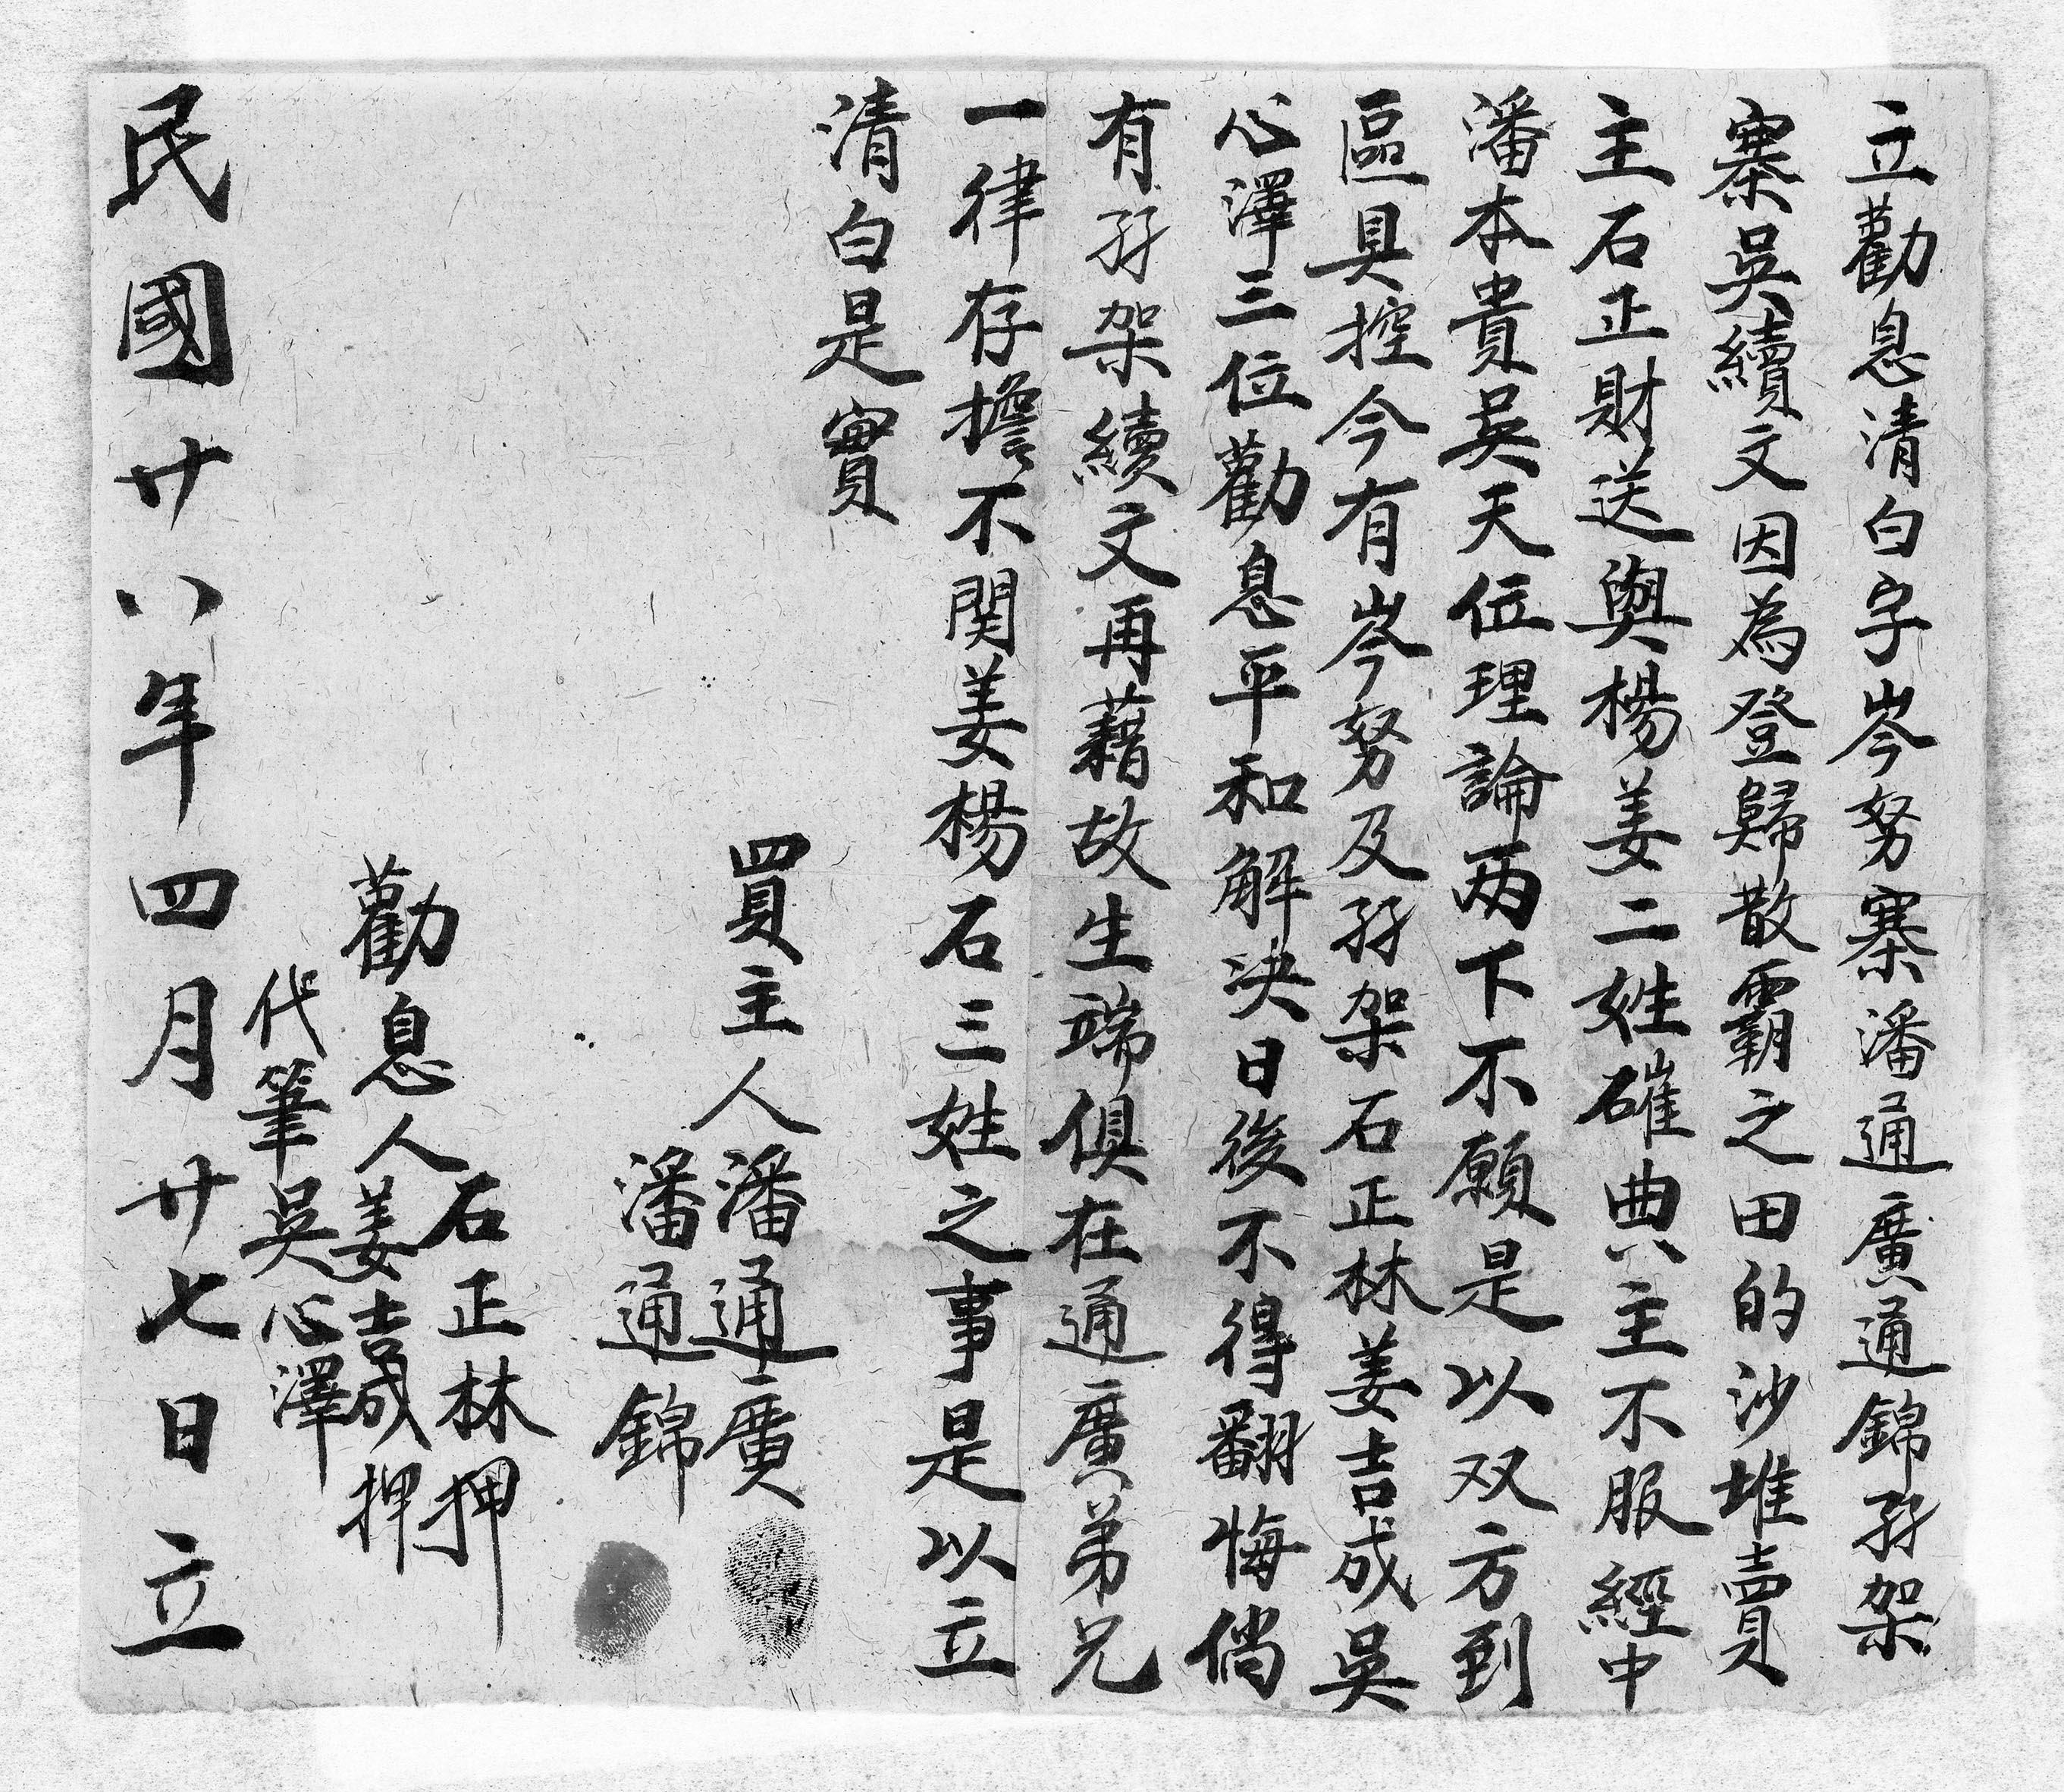 立勸息清白字岑努寨潘通廣通錦孖架
寨吳續文因為登歸散霸之田的沙堆賣
主石正財送與楊姜二姓碓典主不服經中
潘本貴吳天位理論兩下不願是以双方到
區具控今有岑努及孖架石正林姜吉成吳
心澤三位勸息平和解決日後不得翻悔倘
有孖架續文再藉故生端俱在通廣弟兄
一律存擔不関姜楊石三姓之事是以立
清白是實
買主人潘通廣
潘通錦
石正林押
勸息人姜吉成押
代筆吳心澤
民國廿八年四月廿七日立